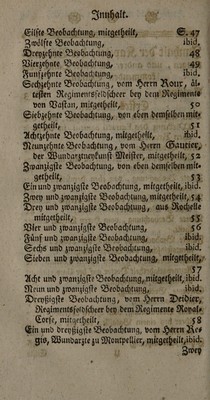 Innhalt.
Eilfte Beobachtung, mitgetheilt, S. 47
Zwölfte Beobachtung, ibid.
Dreyzehnte Beobachtung, 48
Vierzehnte Beobachtung, 49
Funfzehnte Beobachtung, ibid.
Sechzehnte Beobachtung, vom Herrn Rour, äl-
testen Regimentsfeldscheer bey dem Regimente
von Vastan, mitgetheilt, 50
Siebzehnte Beobachtung, von eben demselben mit-
getheilt, 51
Achtzehnte Beobachtung, mitgetheilt, ibid.
Neunzehnte Beobachtung, vom Herrn Gautier,
der Wundarzneykunst Meister, mitgetheilt, 52
Zwanzigste Beobachtung, von eben demselben mit-
getheilt, 53
Ein und zwanzigste Beobachtung, mitgetheilt, ibid.
Zwey und zwanzigste Beobachtung, mitgetheilt, 54
Drey und zwanzigste Beobachtung, aus Rochelle
mitgetheilt, 55
Vier und zwanzigste Beobachtung, 56
Fünf und zwanzigste Beobachtung, ibid.
Sechs und zwanzigste Beobachtung, ibid.
Sieben und zwanzigste Beobachtung, mitgetheilt,
57
Acht und zwanzigste Beobachtung, mitgetheilt, ibid.
Neun und zwanzigste Beobachtung, ibid.
Dreyßigste Beobachtung, vom Herrn Deidier,
Regimentsfeldscheer bey dem Regimente Royal-
Corse, mitgetheilt, 58
Ein und dreyßigste Beobachtung, vom Herrn Re-
gis, Wundarzte zu Montpellier, mitgetheilt, ibid.
Zwey